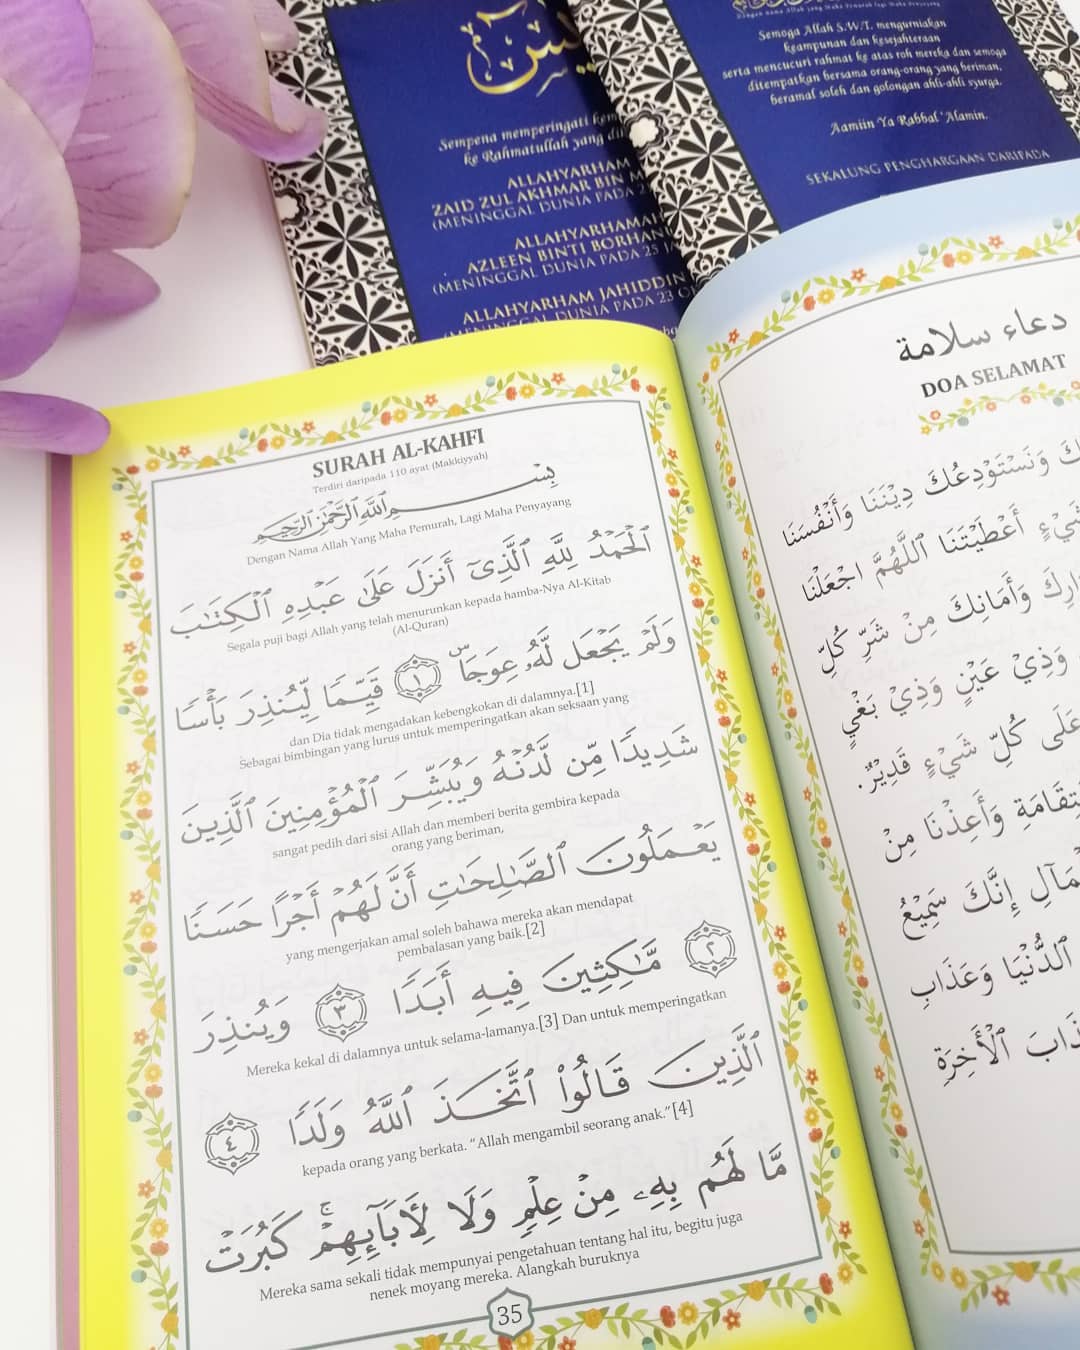 يس
Sempena memperingati
ke Rahmatullah yang
ALLAHYARHAM
ZAID ZUL AKHMAR BIN
(MENINGGAL DUNIA PADA
ALLAHYARHAMAH
AZLEEN BINTI BORHAN
(MENINGGAL DUNIA PADA 25
ALLAHYARHAM JAHIDDIN
(MENINGGAL DUNIA PADA 23
Dengan nama Allah yang Maha Pemurah lagi Maha Penyayang
Semoga Allah S.W.T. mengurniakan
keampunan dan kesejahteraan
serta mencucuri rahmat ke atas roh mereka dan semoga
ditempatkan bersama orang-orang yang beriman,
beramal soleh dan golongan ahli-ahli syurga.
Aamiin Ya Rabbal 'Alamin.
SEKALUNG PENGHARGAAN DARIPADA
SURAH AL-KAHFI
Terdiri daripada 110 ayat (Makkiyyah)
بِسْمِ ٱللَّهِ ٱلرَّحْمَٰنِ ٱلرَّحِيمِ
Dengan Nama Allah Yang Maha Pemurah, Lagi Maha Penyayang
ٱلْحَمْدُ لِلَّهِ ٱلَّذِىٓ أَنزَلَ عَلَىٰ عَبْدِهِ ٱلْكِتَٰبَ
Segala puji bagi Allah yang telah menurunkan kepada hamba-Nya Al-Kitab
(Al-Quran)
وَلَمْ يَجْعَل لَّهُۥ عِوَجَاۜ ١ قَيِّمًا لِّيُنذِرَ بَأْسًا
dan Dia tidak mengadakan kebengkokan di dalamnya.[1]
Sebagai bimbingan yang lurus untuk memperingatkan akan seksaan yang
شَدِيدًا مِّن لَّدُنْهُ وَيُبَشِّرَ ٱلْمُؤْمِنِينَ ٱلَّذِينَ
sangat pedih dari sisi Allah dan memberi berita gembira kepada
orang yang beriman,
يَعْمَلُونَ ٱلصَّٰلِحَٰتِ أَنَّ لَهُمْ أَجْرًا حَسَنًا
yang mengerjakan amal soleh bahawa mereka akan mendapat
pembalasan yang baik.[2]
٢ مَّٰكِثِينَ فِيهِ أَبَدًا ٣ وَيُنذِرَ
Mereka kekal di dalamnya untuk selama-lamanya.[3] Dan untuk memperingatkan
ٱلَّذِينَ قَالُوا۟ ٱتَّخَذَ ٱللَّهُ وَلَدًا ٤
kepada orang yang berkata. “Allah mengambil seorang anak.”[4]
مَّا لَهُم بِهِۦ مِنْ عِلْمٍ وَلَا لِأَبَآئِهِمْ ۚ كَبُرَتْ
Mereka sama sekali tidak mempunyai pengetahuan tentang hal itu, begitu juga
nenek moyang mereka. Alangkah buruknya
35
دعاء سلامة
DOA SELAMAT
وَنَسْتَوْدِعُكَ دِيْنَنَا وَأَنْفُسَنَا
أَعْطَيْتَنَا اَللَّهُمَّ اجْعَلْنَا
وَأَمَانِكَ مِنْ شَرِّ كُلِّ
وَذِيْ عَيْنٍ وَذِيْ بَغْيٍ
عَلَى كُلِّ شَيْءٍ قَدِيْرٌ.
وَأَعِذْنَا مِنْ
إِنَّكَ سَمِيْعُ
الدُّنْيَا وَعَذَابِ
الْأَخِرَةِ